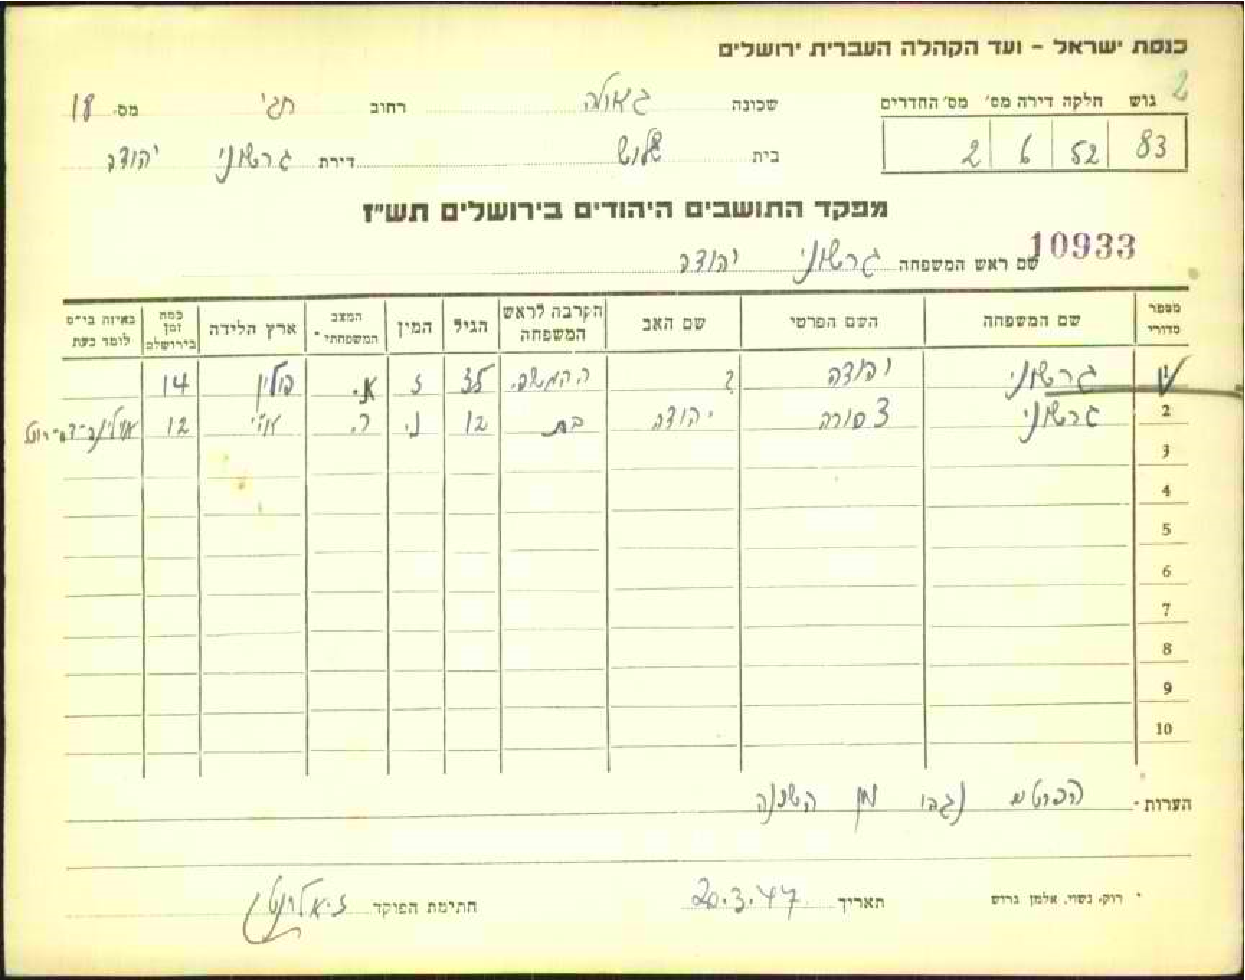 כנסת ישראל - ועד הקהלה העברית ירושלים
2
גוש חלקה דירה מס׳ מס׳ החדרים
83 52 6 2
שכונה גאולה רחוב חגי מס. 18
בית דירת גרשוני יהודה
מפקד התושבים היהודים בירושלים תש״ז
10933
שם ראש המשפחה גרשוני יהודה
מספר סדורי שם המשפחה השם הפרטי שם האב הקרבה לראש המשפחה הגיל המין המצב המשפחתי* ארץ הלידה כמה זמן בירושלים באיזה בי״ס לומד כעת
1 גרשוני יהודה ? 35 ז א. פולין 14
2 גרשוני יהודה בת 12 נ. ר. א״י 12
3
4
5
6
7
8
9
10
הערות. הפרטים נגבו מן השכנה
* רוק, נשוי, אלמן גרוש
תאריך 20.3.47
חתימת הפוקד